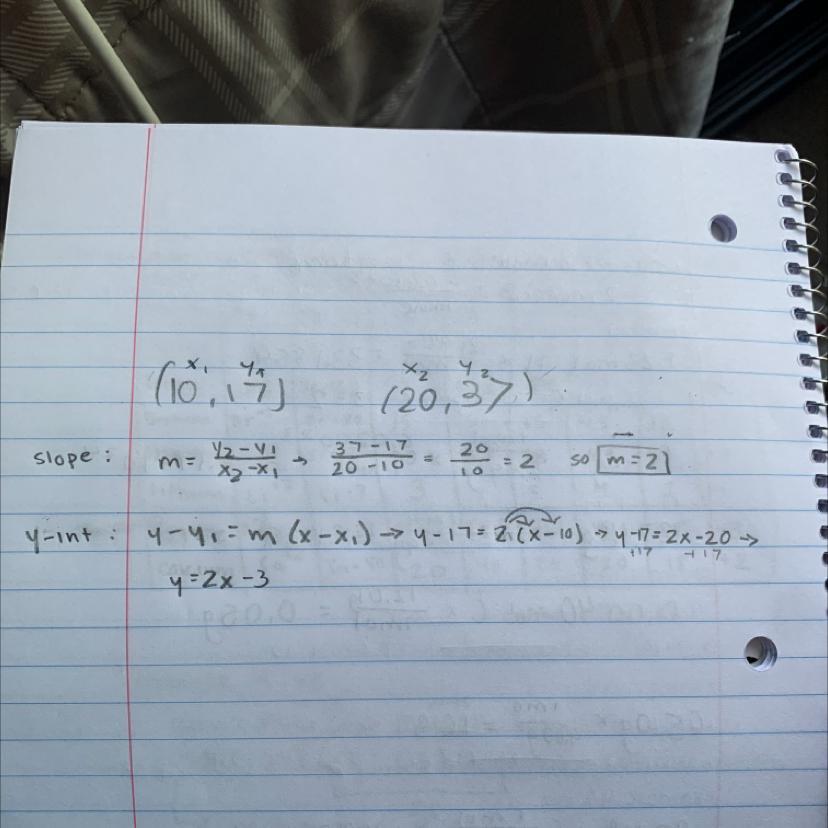 x₁ y₁ x₂ y₂
(10, 17) (20, 37)
slope: m = y₂-y₁/x₂-x₁ → 37-17/20-10 = 20/10 = 2 so m = 2
y-int: y-y₁ = m (x-x₁) → y-17 = 2(x-10) → y-17 = 2x-20 →
+17 +17
y = 2x - 3